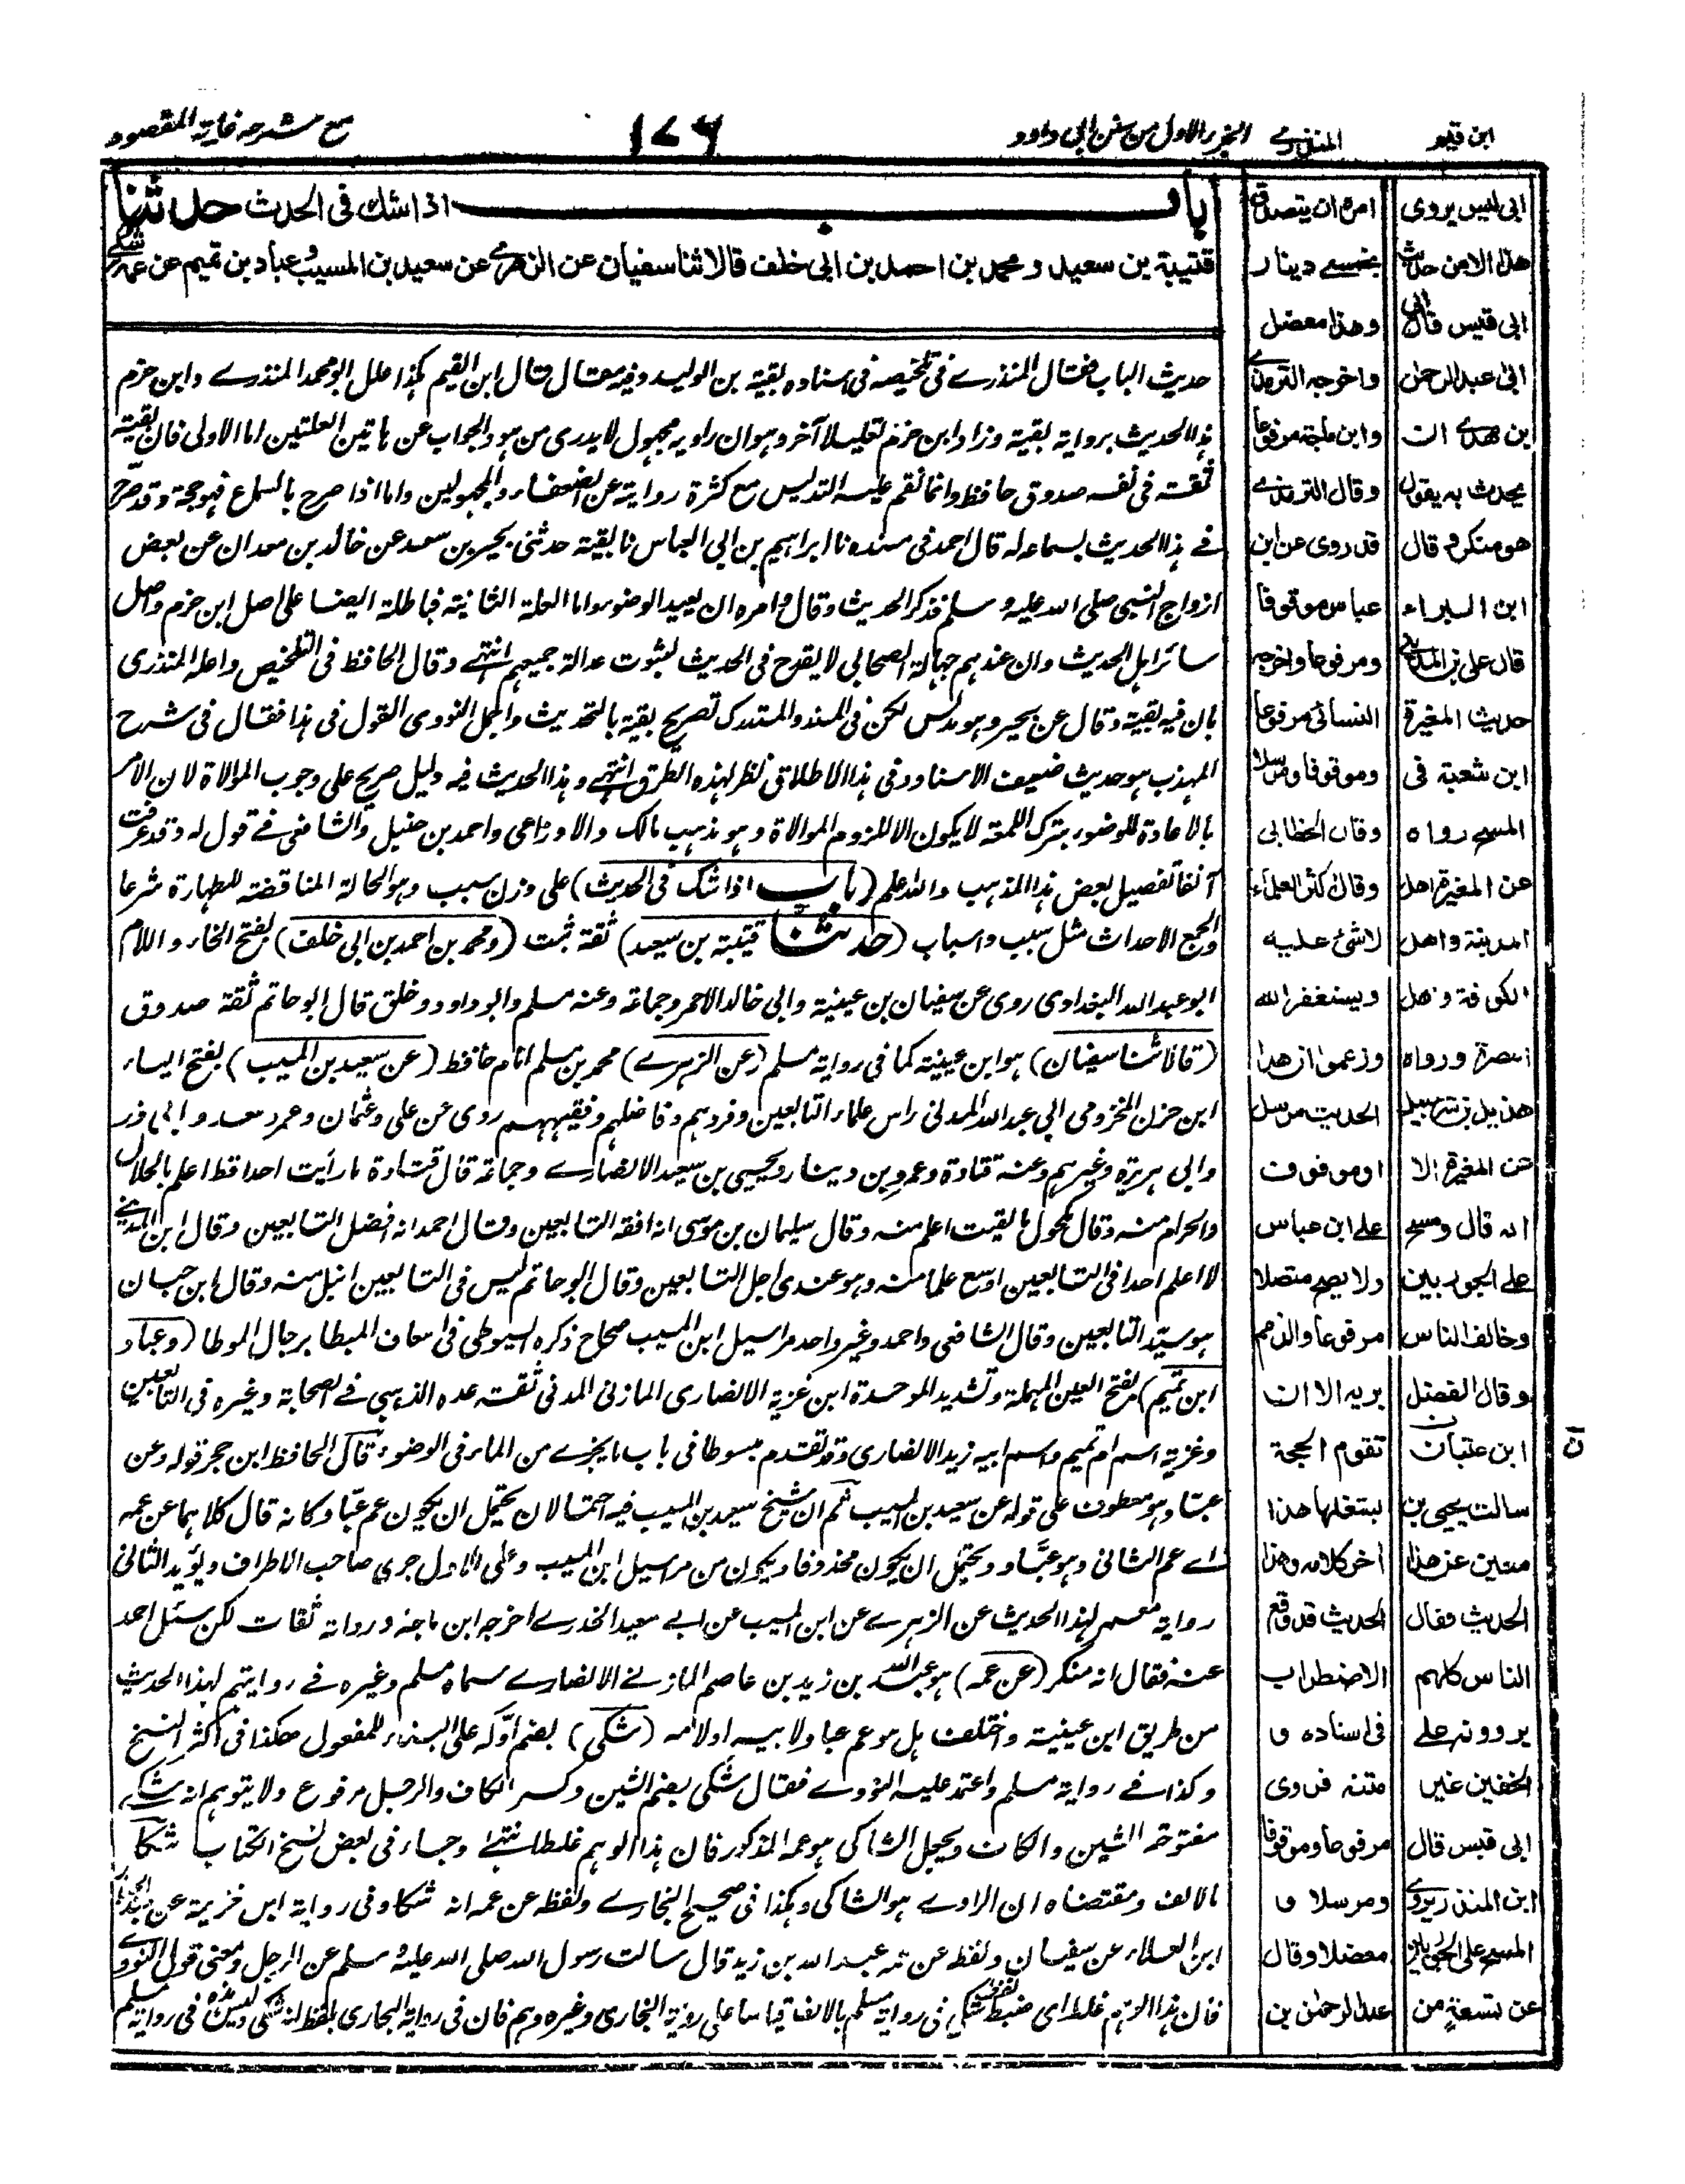 ابن قيم
المنذري
الجزء الاول من سنن ابى داود
١٧٦
مع شرحه غاية المقصود
باب اذا شك فى الحدث حدثنا
قتيبة بن سعيد ومحمد بن احمد بن ابى خلف قالا ثنا سفيان عن الزهرے عن سعيد بن المسيب وعباد بن تميم عن عمه شكے
حديث الباب فقال المنذرے فى تلخيصه فى اسناده بقية بن الوليد وفيه مقال وقال ابن القيم هكذا علل ابو محمد المنذرے وابن حزم
هذا الحديث برواية بقية وزاد ابن حزم تعليلا آخر وهو ان راويه مجهول لا يدرى من هو والجواب عن هاتين العلتين اما الاولى فان بقية
ثقة فى نفسه صدوق حافظ وانما نقم عليه التدليس مع كثرة روايته عن الضعفاء والمجهولين واما اذا صرح بالسماع فهو حجة وقد صرح
فے هذا الحديث بسماعه له قال احمد فى مسنده نا ابراهيم بن ابى العباس نا بقية حدثنى بحير بن سعد عن خالد بن معدان عن بعض
ازواج النبى صلى الله عليه وسلم فذكر الحديث وقال وامره ان يعيد الوضوء واما العلة الثانية فباطلة ايضا على اصل ابن حزم واصل
سائر اهل الحديث وان عندهم جهالة الصحابى لا يقدح فى الحديث لثبوت عدالة جميعهم انتهے وقال الحافظ فى التلخيص واعله المنذرى
بان فيه بقية وقال عن بحير وهو مدلس لكن فى المسند والمستدرك تصريح بقية بالتحديث واجمل النووى القول فى هذا فقال فى شرح
المهذب هو حديث ضعيف الاسناد وفى هذا الاطلاق نظر لهذه الطرق انتهے وهذا الحديث فيه دليل صريح على وجوب الموالاة لان الامر
بالاعادة للوضوء بترك اللمعة لا يكون الا للزوم الموالاة وهو مذهب مالك والاوزاعى واحمد بن حنبل والشافعى فے قول له وقد عرفت
آنفا تفصيل بعض هذا المذهب والله اعلم (باب اذا شك فى الحديث) على وزن سبب وهو الحالة المناقضة للطهارة شرعا
والجمع الاحداث مثل سبب واسباب (حدثنا قتيبة بن سعيد) ثقة ثبت (ومحمد بن احمد بن ابى خلف) بفتح الخاء واللام
ابو عبد الله البغداوى روى عن سفيان بن عيينة وابى خالد الاحمر وجماعة وعنه مسلم وابو داود وخلق قال ابو حاتم ثقة صدوق
(قالا ثنا سفيان) هو ابن عيينة كما فى رواية مسلم (عن الزهرے) محمد بن مسلم امام حافظ (عن سعيد بن المسيب) بفتح الياء
ابن حزن المخزومى ابى عبد الله المدنى راس علماء التابعين وفردهم وفاضلهم وفقيههم روى عن على وعثمان وعمر وسعد وابى ذر
وابى هريرة وغيرهم وعنه قتادة وعمرو بن دينار ويحيى بن سعيد الانصارے وجماعة قال قتادة ما رأيت احدا قط اعلم بالحلال
والحرام منه وقال مكحول ما لقيت اعلم منه وقال سليمان بن موسى انه افقه التابعين وقال احمد انه افضل التابعين وقال ابن المدينے
لا اعلم احدا فى التابعين اوسع علما منه وهو عندى اجل التابعين وقال ابو حاتم ليس فى التابعين انبل منه وقال ابن حبان
هو سيد التابعين وقال الشافعى واحمد وغير واحد مراسيل ابن المسيب صحاح ذكره السيوطى فى اسعاف المبطا برجال الموطا (وعباد
ابن تميم) بفتح العين المهملة وتشديد الموحدة ابن غزية الانصارى المازنى المدنى ثقة عده الذهبى فے الصحابة وغيره فى التابعين
وغزية اسم ام تميم واسم ابيه زيد الانصارى وقد تقدم مبسوطا فى باب ما يجزے من الماء فى الوضوء قال الحافظ ابن حجر قوله وعن
عباد هو معطوف على قوله عن سعيد بن المسيب ثم ان شيخ سعيد بن المسيب فيه احتمالان يحتمل ان يكون عم عباد كانه قال كلاهما عن عمه
اے عم الثانى وهو عباد ويحتمل ان يكون محذوفا ويكون من مراسيل ابن المسيب وعلى الاول جرى صاحب الاطراف ويؤيد الثانى
رواية معمر لهذا الحديث عن الزهرے عن ابن المسيب عن ابے سعيد الخدرے اخرجه ابن ماجة ورواته ثقات لكن سئل احمد
عنه فقال انه منكر (عن عمه) هو عبد الله بن زيد بن عاصم المازنے الانصارے سماه مسلم وغيره فے روايتهم لهذا الحديث
من طريق ابن عيينة واختلف هل هو عم عباد لابيه او لامه (شكى) بضم اوله على البناء للمفعول هكذا فى اكثر النسخ
وكذا فے رواية مسلم واعتمد عليه النووے فقال شكى بضم الشين وكسر الكاف والرجل مرفوع ولا يتوهم انه شكے
مفتوحة الشين والكاف ويجعل الشاكى هو عمه المذكور فان هذا الوهم غلط انتهے وجاء فى بعض نسخ الكتاب شكا
بالالف ومقتضاه ان الراوے هو الشاكى وهكذا فى صحيح البخارے ولفظه عن عمه انه شكا وفى رواية ابن خزيمة عن عبد الجبار
ابن العلاء عن سفيان ولفظه عن عمه عبد الله بن زيد قال سالت رسول الله صلى الله عليه وسلم عن الرجل ومعنى قول النووے
فان هذا الوهم غلط اى ضبط لفظ شكى فى رواية مسلم بالالف قياسا على رواية البخارى وغيره وهم فان فى رواية البخارى بلفظ انه شكى وليس هذه فى رواية مسلم
امره ان يتصدق
بخمسے دينار
وهذا معضل
واخرجه الترمذے
وابن ماجة مرفوعا
وقال الترمذے
قد روى عن ابن
عباس موقوفا
ومرفوعا واخرجه
النسائى مرفوعا
وموقوفا ومرسلا
وقال الخطابى
وقال اكثر العلماء
لا شئ عليه
ويستغفر الله
وزعموا ان هذا
الحديث مرسل
او موقوف
على ابن عباس
ولا يصح متصلا
مرفوعا والذمم
بريه الا ان
تقوم الحجة
لشغلها هذا
اخر كلامه وهذا
الحديث قد وقع
الاضطراب
فى اسناده و
متنه فروى
مرفوعا وموقوفا
ومرسلا و
معضلا وقال
عبد الرحمن بن
ابى قيس يروى
هذا الا من حديث
ابى قيس قال ابى
ابى عبد الرحمن
بن مهدے ان
يحدث به يقول
هو منكر وقال
ابن البراء
قال على بن المدينے
حديث المغيرة
ابن شعبة فى
المسح رواه
عن المغيرة اهل
المدينة واهل
الكوفة واهل
البصرة ورواه
هذيل بن شرحبيل
عن المغيرة الا
انه قال ومسح
على الجوربين
وخالف الناس
وقال الفضل
ابن عتبان
سالت يحيى بن
معين عن هذا
الحديث فقال
الناس كلهم
يروونه على
الخفين غير
ابى قيس قال
ابن المنذر يروے
المسح على الجوربين
عن تسعة من
ن